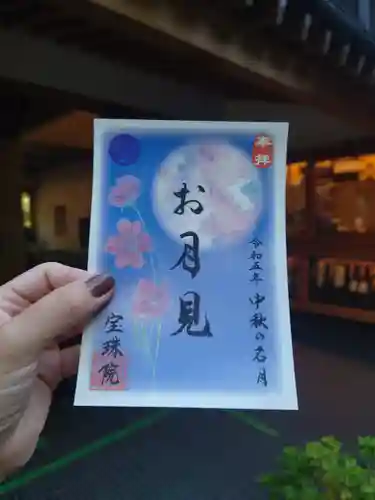 奉拝
お月見
令和五年 中秋の名月
宝珠院